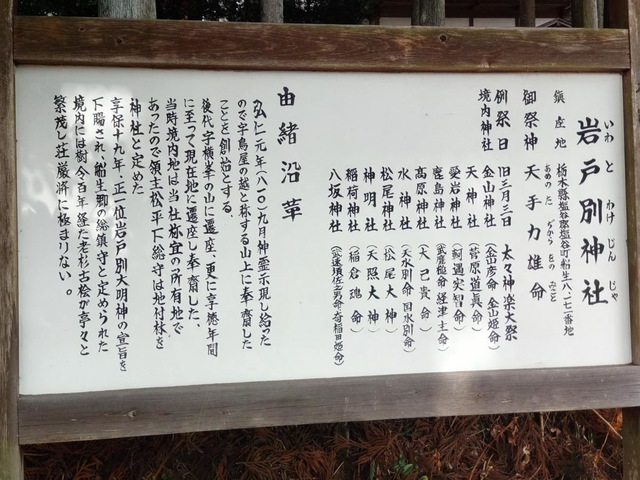 岩戸別神社
いわ と わけ じん じゃ
鎮座地 栃木県塩谷郡塩谷町船生八、二七一番地
御祭神 天手力雄命
あめの た ぢからをの みこと
例祭日 旧三月三日 太々神楽大祭
境内神社 金山神社 (金山彦命 金山姫命)
天神社 (菅原道眞命)
愛岩神社 (軻遇突智命)
鹿島神社 (武甕槌命 経津主命)
高原神社 (大己貴命)
水神社 (天水別命 国水別命)
松尾神社 (松尾大神)
神明社 (天照大神)
稲荷神社 (稲倉魂命)
八坂神社 (武速須佐之男命 奇稲田姫命)
由緒沿革
弘仁元年(八一〇)九月神霊示現し給った
ので字鳥屋の越と称する山上に奉齋した
ことを創始とする。
後代字横峯の山に遷座、更に享徳年間
に至って現在地に遷座し奉齋した、
当時境内地は当社祢宜の所有地で
あったので領主松平下総守は地付林を
神社と定めた
享保十九年、正一位岩戸別大明神の宣旨を
下賜され、船生郷の総鎮守と定められた
境内には樹令百年経た老杉古桧が亭々と
繁茂し荘厳将に極まりない。